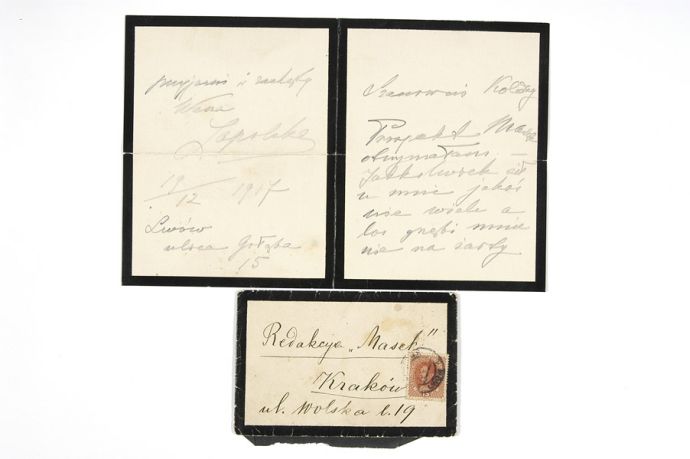 przyjaźń i zachętę
Wasza
Zapolska
19/12 1917
Lwów
ulica Gołębia
15
Szanowni Koledzy
Projekt Masek
otrzymałam. —
Jakkolwiek sił
u mnie jakoś
nie wiele a
los gnębi mnie
nie na żarty
Redakcja „Masek”
Kraków
ul. Wolska l. 19